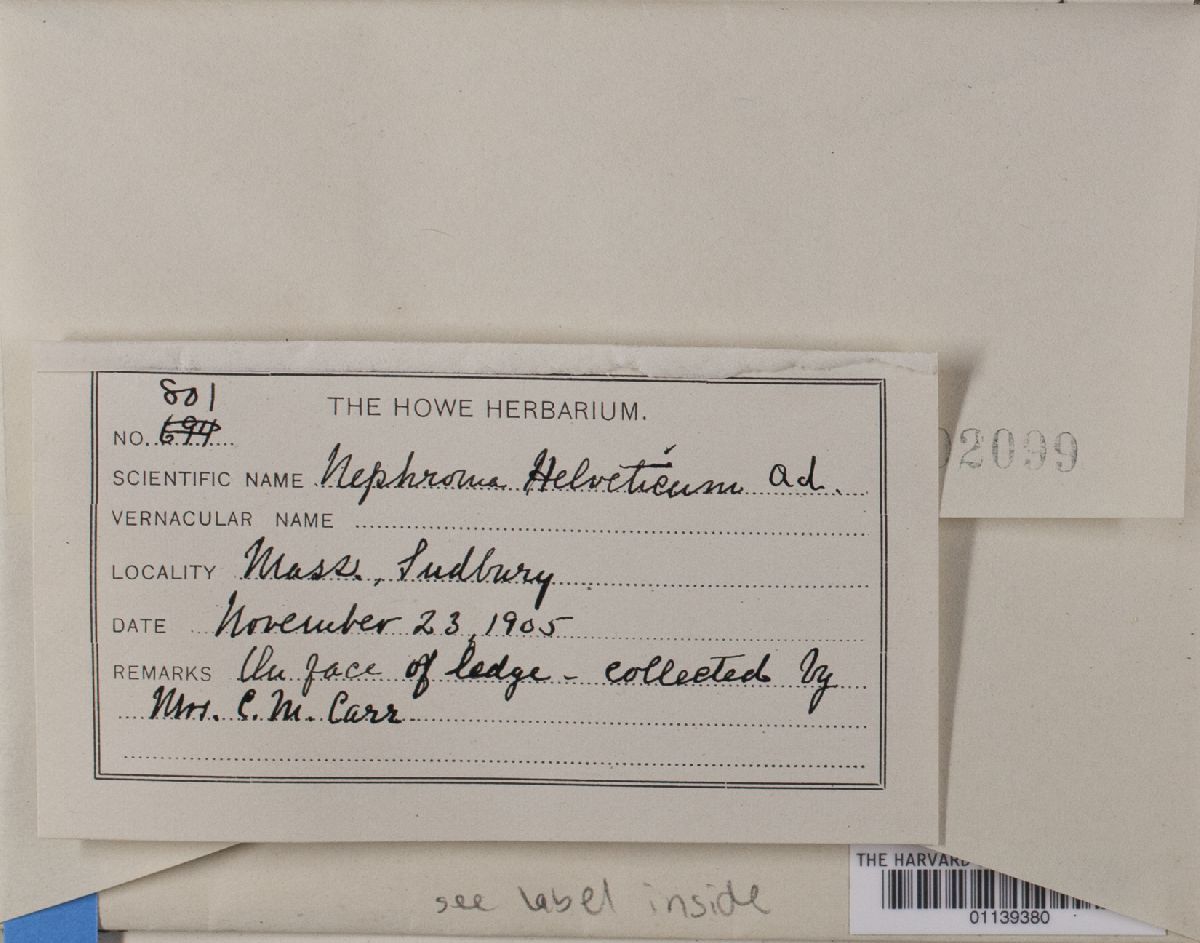 801
THE HOWE HERBARIUM.
NO. 694
SCIENTIFIC NAME Nephroma Helveticum Ach.
VERNACULAR NAME
LOCALITY Mass., Sudbury
DATE November 23, 1905
REMARKS On face of ledge - collected by
Mrs. C. M. Carr
2099
see label inside
THE HARVARD
01139380